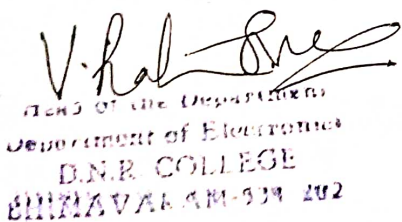 Head of the Department
Department of Electronics
D.N.R. COLLEGE
BHIMAVARAM-534 202